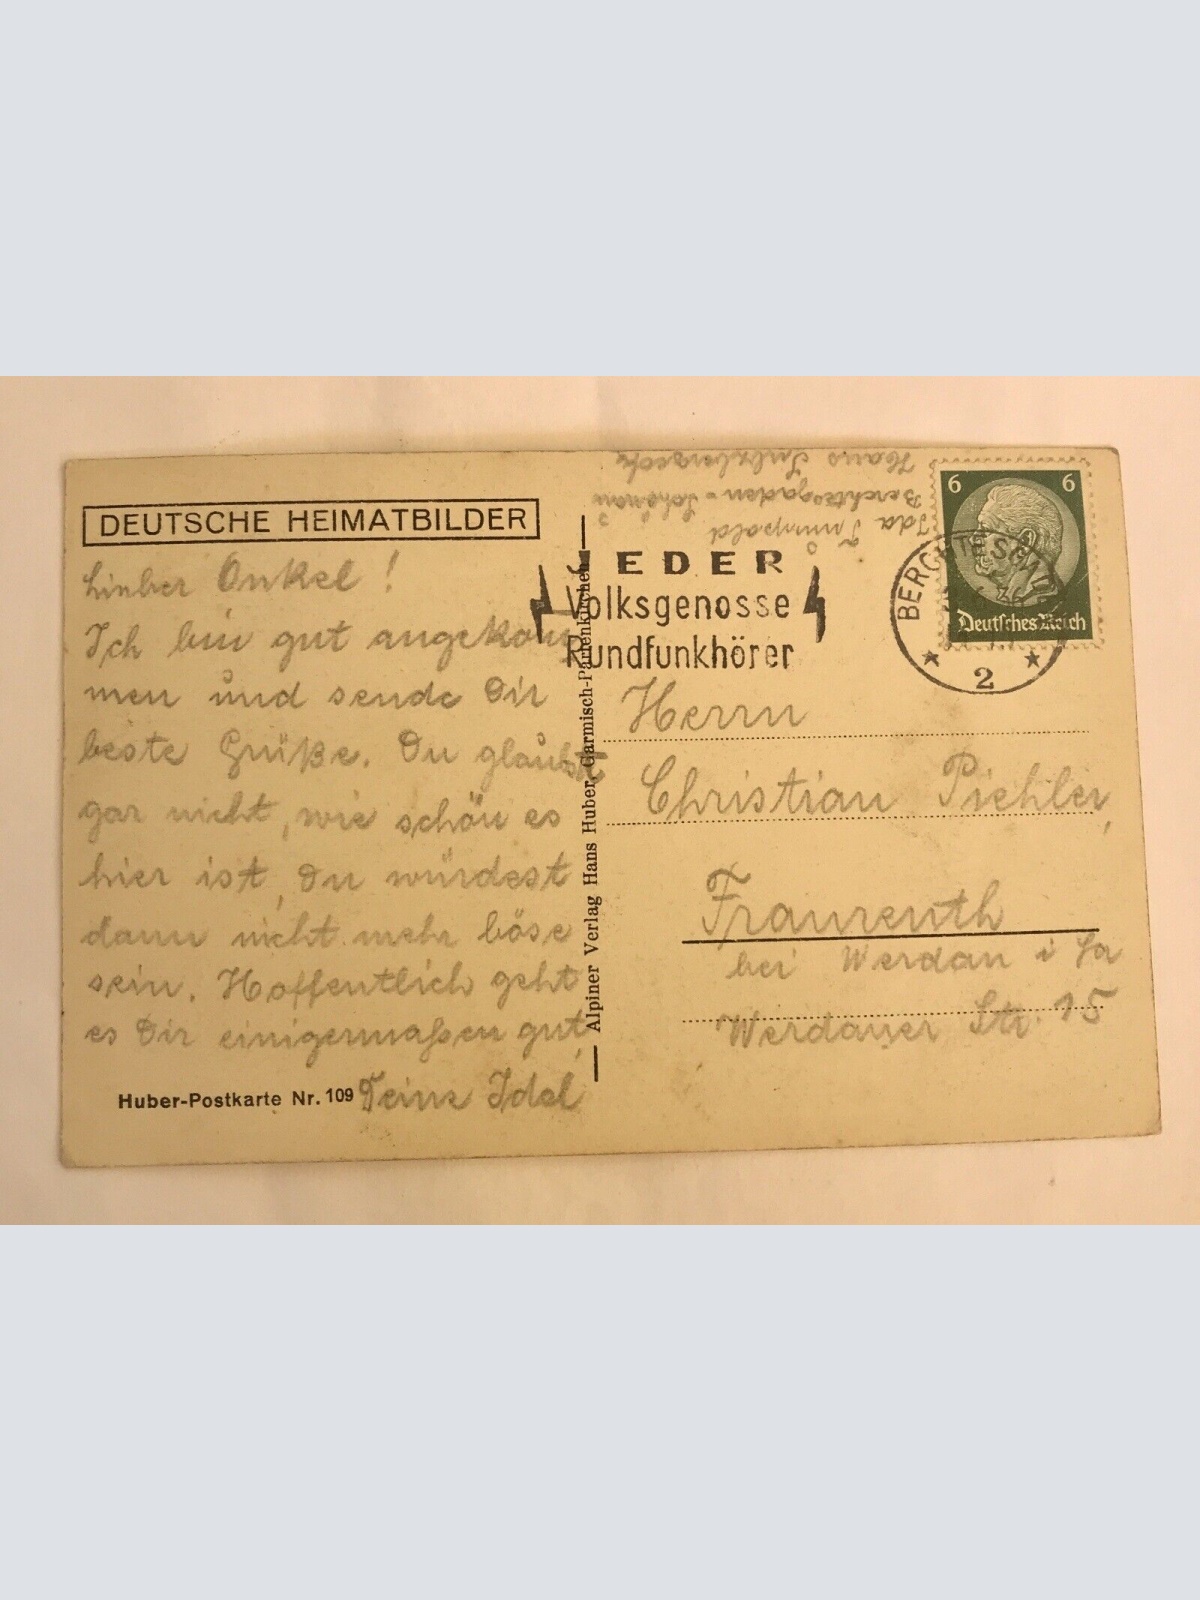 DEUTSCHE HEIMATBILDER
Lieber Onkel!
Ich bin gut angekom
men und sende Dir
beste Grüße. Du glaubst
gar nicht, wie schön es
hier ist, Du würdest
dann nicht mehr böse
sein. Hoffentlich geht
es Dir einigermaßen gut.
Deine Idel
Huber-Postkarte Nr. 109
Alpiner Verlag Hans Huber, Garmisch-Partenkirchen
Ida
Berchtesgaden - Schönau
Haus Sulzbergeck
JEDER
Volksgenosse
Rundfunkhörer
BERCHTESGADEN
2
6 6
Deutsches Reich
Herrn
Christian Pichler,
Fraureuth
bei Werdau i Sa
Werdauer Str. 15